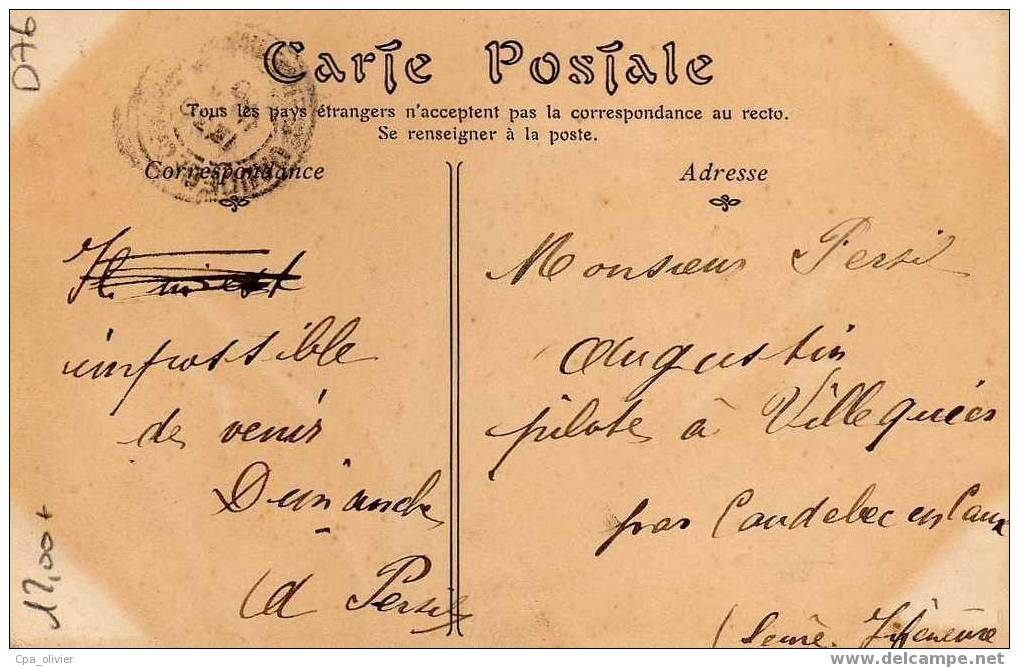 D76
Carte Postale
Tous les pays étrangers n'acceptent pas la correspondance au recto.
Se renseigner à la poste.
Correspondance
Adresse
Il m'est
impossible
de venir
Dimanche
A Persil
Monsieur Persil
Augustin
pilote à Villequier
par Caudebec en Caux
(Seine Inférieure
12,00+
Cpa_olivier
www.delcampe.net